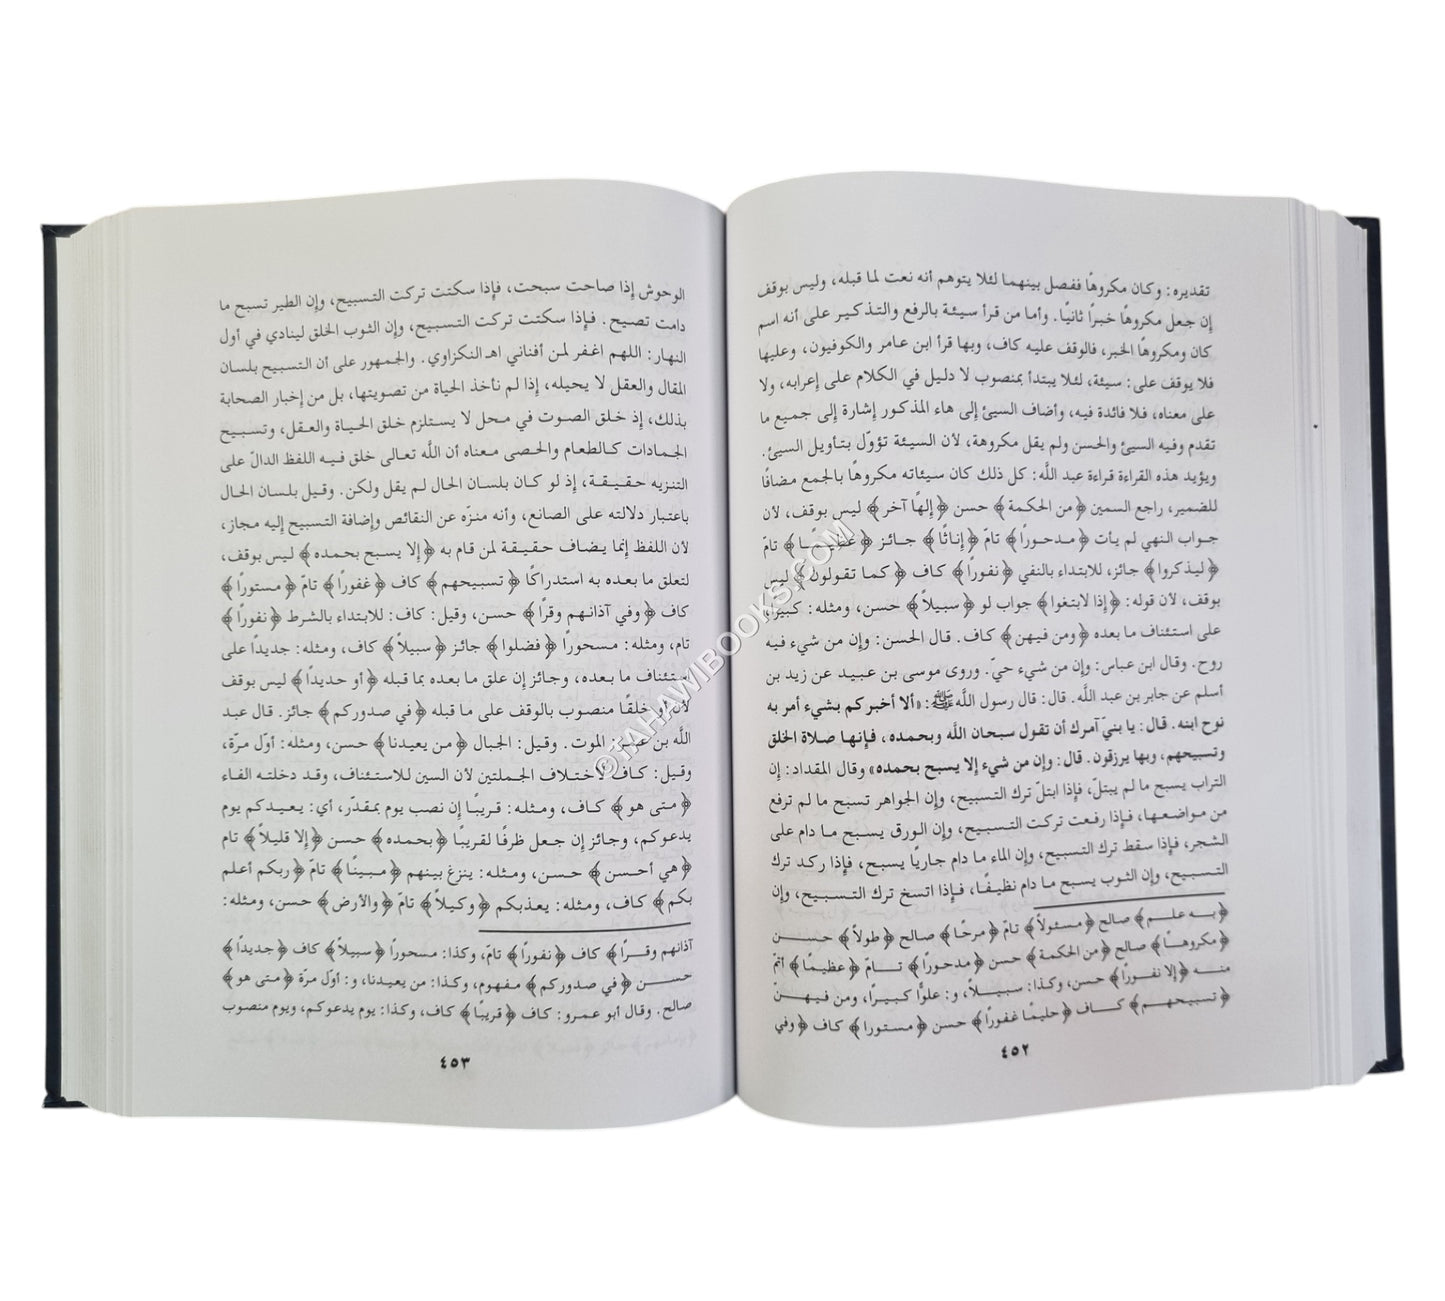 تقديره: وكان مكروهًا ففصل بينهما لئلا يتوهم أنه نعت لما قبله، وليس بوقف
إن جعل مكروهًا خبرًا ثانيًا. وأما من قرأ سيئة بالرفع والتذكير على أنه اسم
كان ومكروهًا الخبر، فالوقف عليه كاف، وبها قرأ ابن عامر والكوفيون، وعليها
فلا يوقف على: سيئة، لئلا يبتدأ بمنصوب لا دليل في الكلام على إعرابه، ولا
على معناه، فلا فائدة فيه، وأضاف السيئ إلى هاء المذكور إشارة إلى جميع ما
تقدم وفيه السيئ والحسن ولم يقل مكروهة، لأن السيئة تؤوّل بتأويل السيئ.
ويؤيد هذه القراءة قراءة عبد اللَّه: كل ذلك كان سيئاته مكروهًا بالجمع مضافًا
للضمير، راجع السمين ﴿من الحكمة﴾ حسن ﴿إلهًا آخر﴾ ليس بوقف، لأن
جواب النهي لم يأت ﴿مدحورًا﴾ تامّ ﴿إناثًا﴾ جائز ﴿عظيمًا﴾ تامّ
﴿ليذكروا﴾ جائز، للابتداء بالنفي ﴿نفورًا﴾ كاف ﴿كما تقولون﴾ ليس
بوقف، لأن قوله: ﴿إذا لابتغوا﴾ جواب لو ﴿سبيلاً﴾ حسن، ومثله: كبيرًا،
على استئناف ما بعده ﴿ومن فيهن﴾ كاف. قال الحسن: وإن من شيء فيه
روح. وقال ابن عباس: وإن من شيء حيّ. وروى موسى بن عبيد عن زيد بن
أسلم عن جابر بن عبد اللَّه. قال: قال رسول اللَّه ﷺ: «ألا أخبركم بشيء أمر به
نوح ابنه. قال: يا بنيّ آمرك أن تقول سبحان اللَّه وبحمده، فإنها صلاة الخلق
وتسبيحهم، وبها يرزقون. قال: وإن من شيء إلا يسبح بحمده» وقال المقداد: إن
التراب يسبح ما لم يبتلّ، فإذا ابتلّ ترك التسبيح، وإن الجواهر تسبح ما لم ترفع
من مواضعها، فإذا رفعت تركت التسبيح، وإن الورق يسبح ما دام على
الشجر، فإذا سقط ترك التسبيح، وإن الماء ما دام جاريًا يسبح، فإذا ركد ترك
التسبيح، وإن الثوب يسبح ما دام نظيفًا، فإذا اتسخ ترك التسبيح، وإن
﴿به علم﴾ صالح ﴿مسئولاً﴾ تامّ ﴿مرحًا﴾ صالح ﴿طولاً﴾ حسن
﴿مكروهًا﴾ صالح ﴿من الحكمة﴾ حسن ﴿مدحورًا﴾ تامّ ﴿عظيمًا﴾ أتمّ
منه ﴿إلا نفورًا﴾ حسن، وكذا: سبيلاً، و: علوًّا كبيرًا، ومن فيهنّ
﴿تسبيحهم﴾ كاف ﴿حليمًا غفورًا﴾ حسن ﴿مستورا﴾ كاف ﴿وفي
٤٥٢
الوحوش إذا صاحت سبحت، فإذا سكتت تركت التسبيح، وإن الطير تسبح ما
دامت تصيح. فإذا سكتت تركت التسبيح، وإن الثوب الخلق لينادي في أول
النهار: اللهم اغفر لمن أفناني اهـ النكزاوي. والجمهور على أن التسبيح بلسان
المقال والعقل لا يحيله، إذا لم نأخذ الحياة من تصويتها، بل من إخبار الصحابة
بذلك، إذ خلق الصوت في محل لا يستلزم خلق الحياة والعقل، وتسبيح
الجمادات كالطعام والحصى معناه أن اللَّه تعالى خلق فيه اللفظ الدالّ على
التنزيه حقيقة، إذ لو كان بلسان الحال لم يقل ولكن. وقيل بلسان الحال
باعتبار دلالته على الصانع، وأنه منزّه عن النقائص وإضافة التسبيح إليه مجاز،
لأن اللفظ إنما يضاف حقيقة لمن قام به ﴿إلا يسبح بحمده﴾ ليس بوقف،
لتعلق ما بعده به استدراكًا ﴿تسبيحهم﴾ كاف ﴿غفورًا﴾ تامّ ﴿مستورًا﴾
كاف ﴿وفي آذانهم وقرًا﴾ حسن، وقيل: كاف: للابتداء بالشرط ﴿نفورًا﴾
تام، ومثله: مسحورًا ﴿فضلوا﴾ جائز ﴿سبيلاً﴾ كاف، ومثله: جديدًا على
استئناف ما بعده، وجائز إن علق ما بعده بما قبله ﴿أو حديدًا﴾ ليس بوقف
لأن أو خلقًا منصوب بالوقف على ما قبله ﴿في صدوركم﴾ جائز. قال عبد
اللَّه بن عمر: الموت. وقيل: الجبال ﴿من يعيدنا﴾ حسن، ومثله: أوّل مرّة،
وقيل: كاف لاختلاف الجملتين لأن السين للاستئناف، وقد دخلته الفاء
﴿متى هو﴾ كاف، ومثله: قريبًا إن نصب يوم بمقدّر، أي: يعيدكم يوم
يدعوكم، وجائز إن جعل ظرفًا لقريبًا ﴿بحمده﴾ حسن ﴿إلا قليلاً﴾ تام
﴿هي أحسن﴾ حسن، ومثله: ينزغ بينهم ﴿مبينًا﴾ تامّ ﴿ربكم أعلم
بكم﴾ كاف، ومثله: يعذبكم ﴿وكيلاً﴾ تامّ ﴿والأرض﴾ حسن، ومثله:
آذانهم وقرًا﴾ كاف ﴿نفورًا﴾ تامّ، وكذا: مسحورًا ﴿سبيلاً﴾ كاف ﴿جديدًا﴾
حسن ﴿في صدوركم﴾ مفهوم، وكذا: من يعيدنا، و: أوّل مرّة ﴿متى هو﴾
صالح. وقال أبو عمرو: كاف ﴿قريبًا﴾ كاف، وكذا: يوم يدعوكم، ويوم منصوب
٤٥٣
©TAHAWIBOOKS.COM